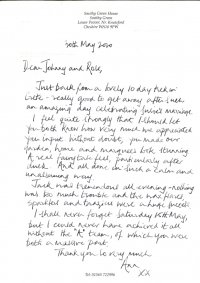 Smithy Green House
Smithy Green
Lower Peover, Nr. Knutsford
Cheshire WA16
20th May 2010
Dear Johnny and Rose,
Just back from a lovely 10 day trek in
Crete - really good to get away after such
an amazing day celebrating Juliet's marriage.
I feel quite strongly that I should let
you both know how very much we appreciated
you input. Without doubt, you made our
garden, home and marquees look stunning.
A real fairytale feel, particularly after
dusk. And all done in such a calm and
unassuming way.
Jack was tremendous all evening - nothing
was too much trouble and the wax flares
sparkled and braziers were a huge success.
I shall never forget Saturday 8th May,
but I could never have achieved it all
without the "A" team, of which you were
both a massive part.
Thank you so very much
Ann
xx
Tel: 01565 722986